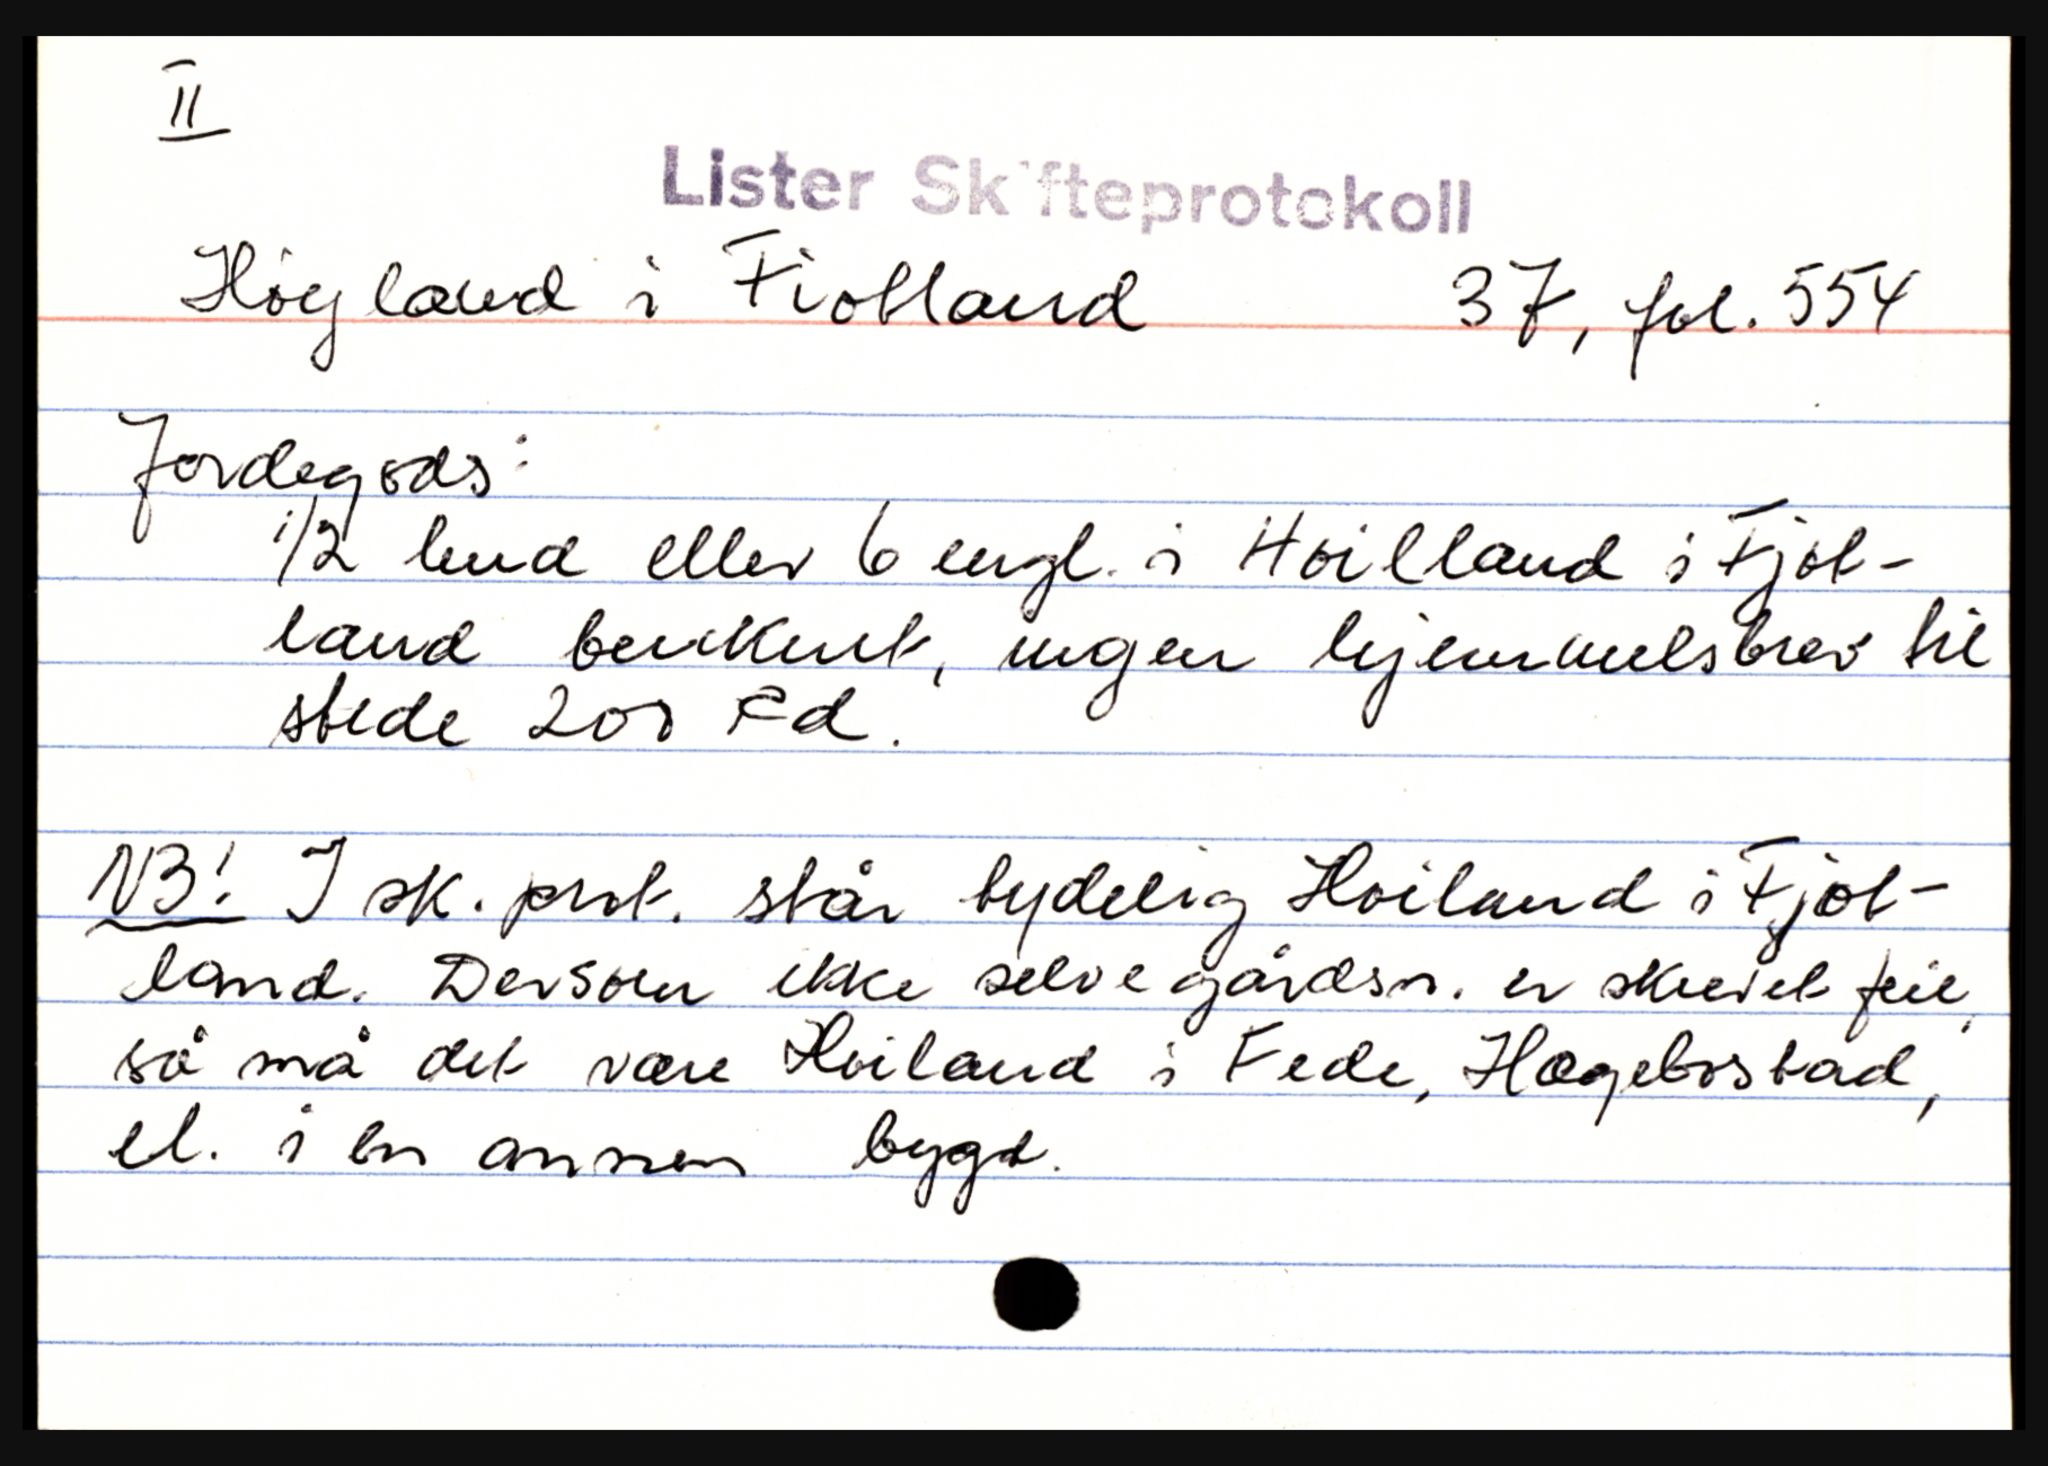 II
Lister Skifteprotokoll
Høyland i Fiotland 37, fol. 554
Jordegods:
1/2 hud eller 6 engl. i Hoilland i Fjot-
land benkent, ingen hjemmelsbrev til
stede 200 rd.
NB! I sk. prot. står tydelig Hoiland i Fjot-
land. Dersom ikke selve gårdsn. er skrevet feil,
så må det være Hoiland i Fede, Hægebostad,
el. i en annen bygd.